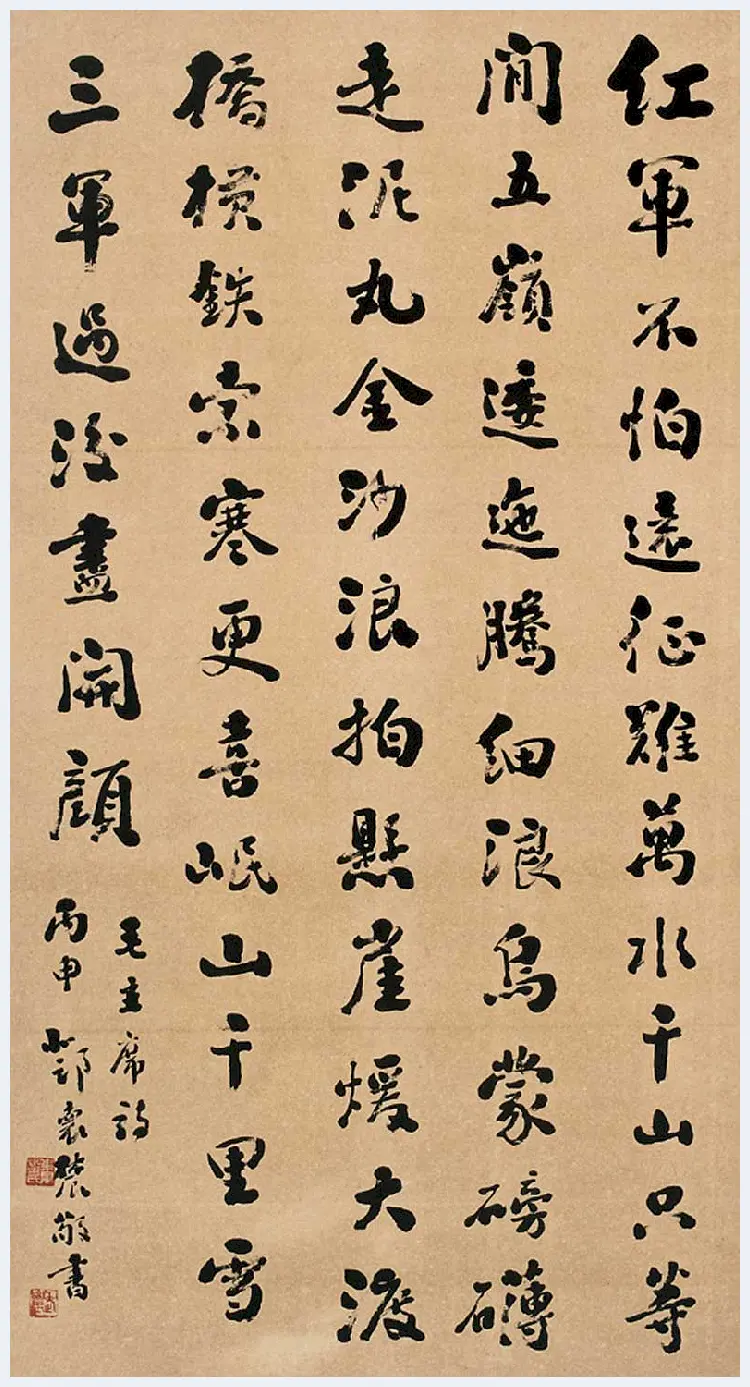 红軍不怕遠征難萬水千山只等
閒五嶺逶迤騰細浪烏蒙磅礴
走泥丸金沙浪拍懸崖煖大渡
橋横鉄索寒更喜岷山千里雪
三軍過後盡開顔
毛主席詩
丙申 敬書